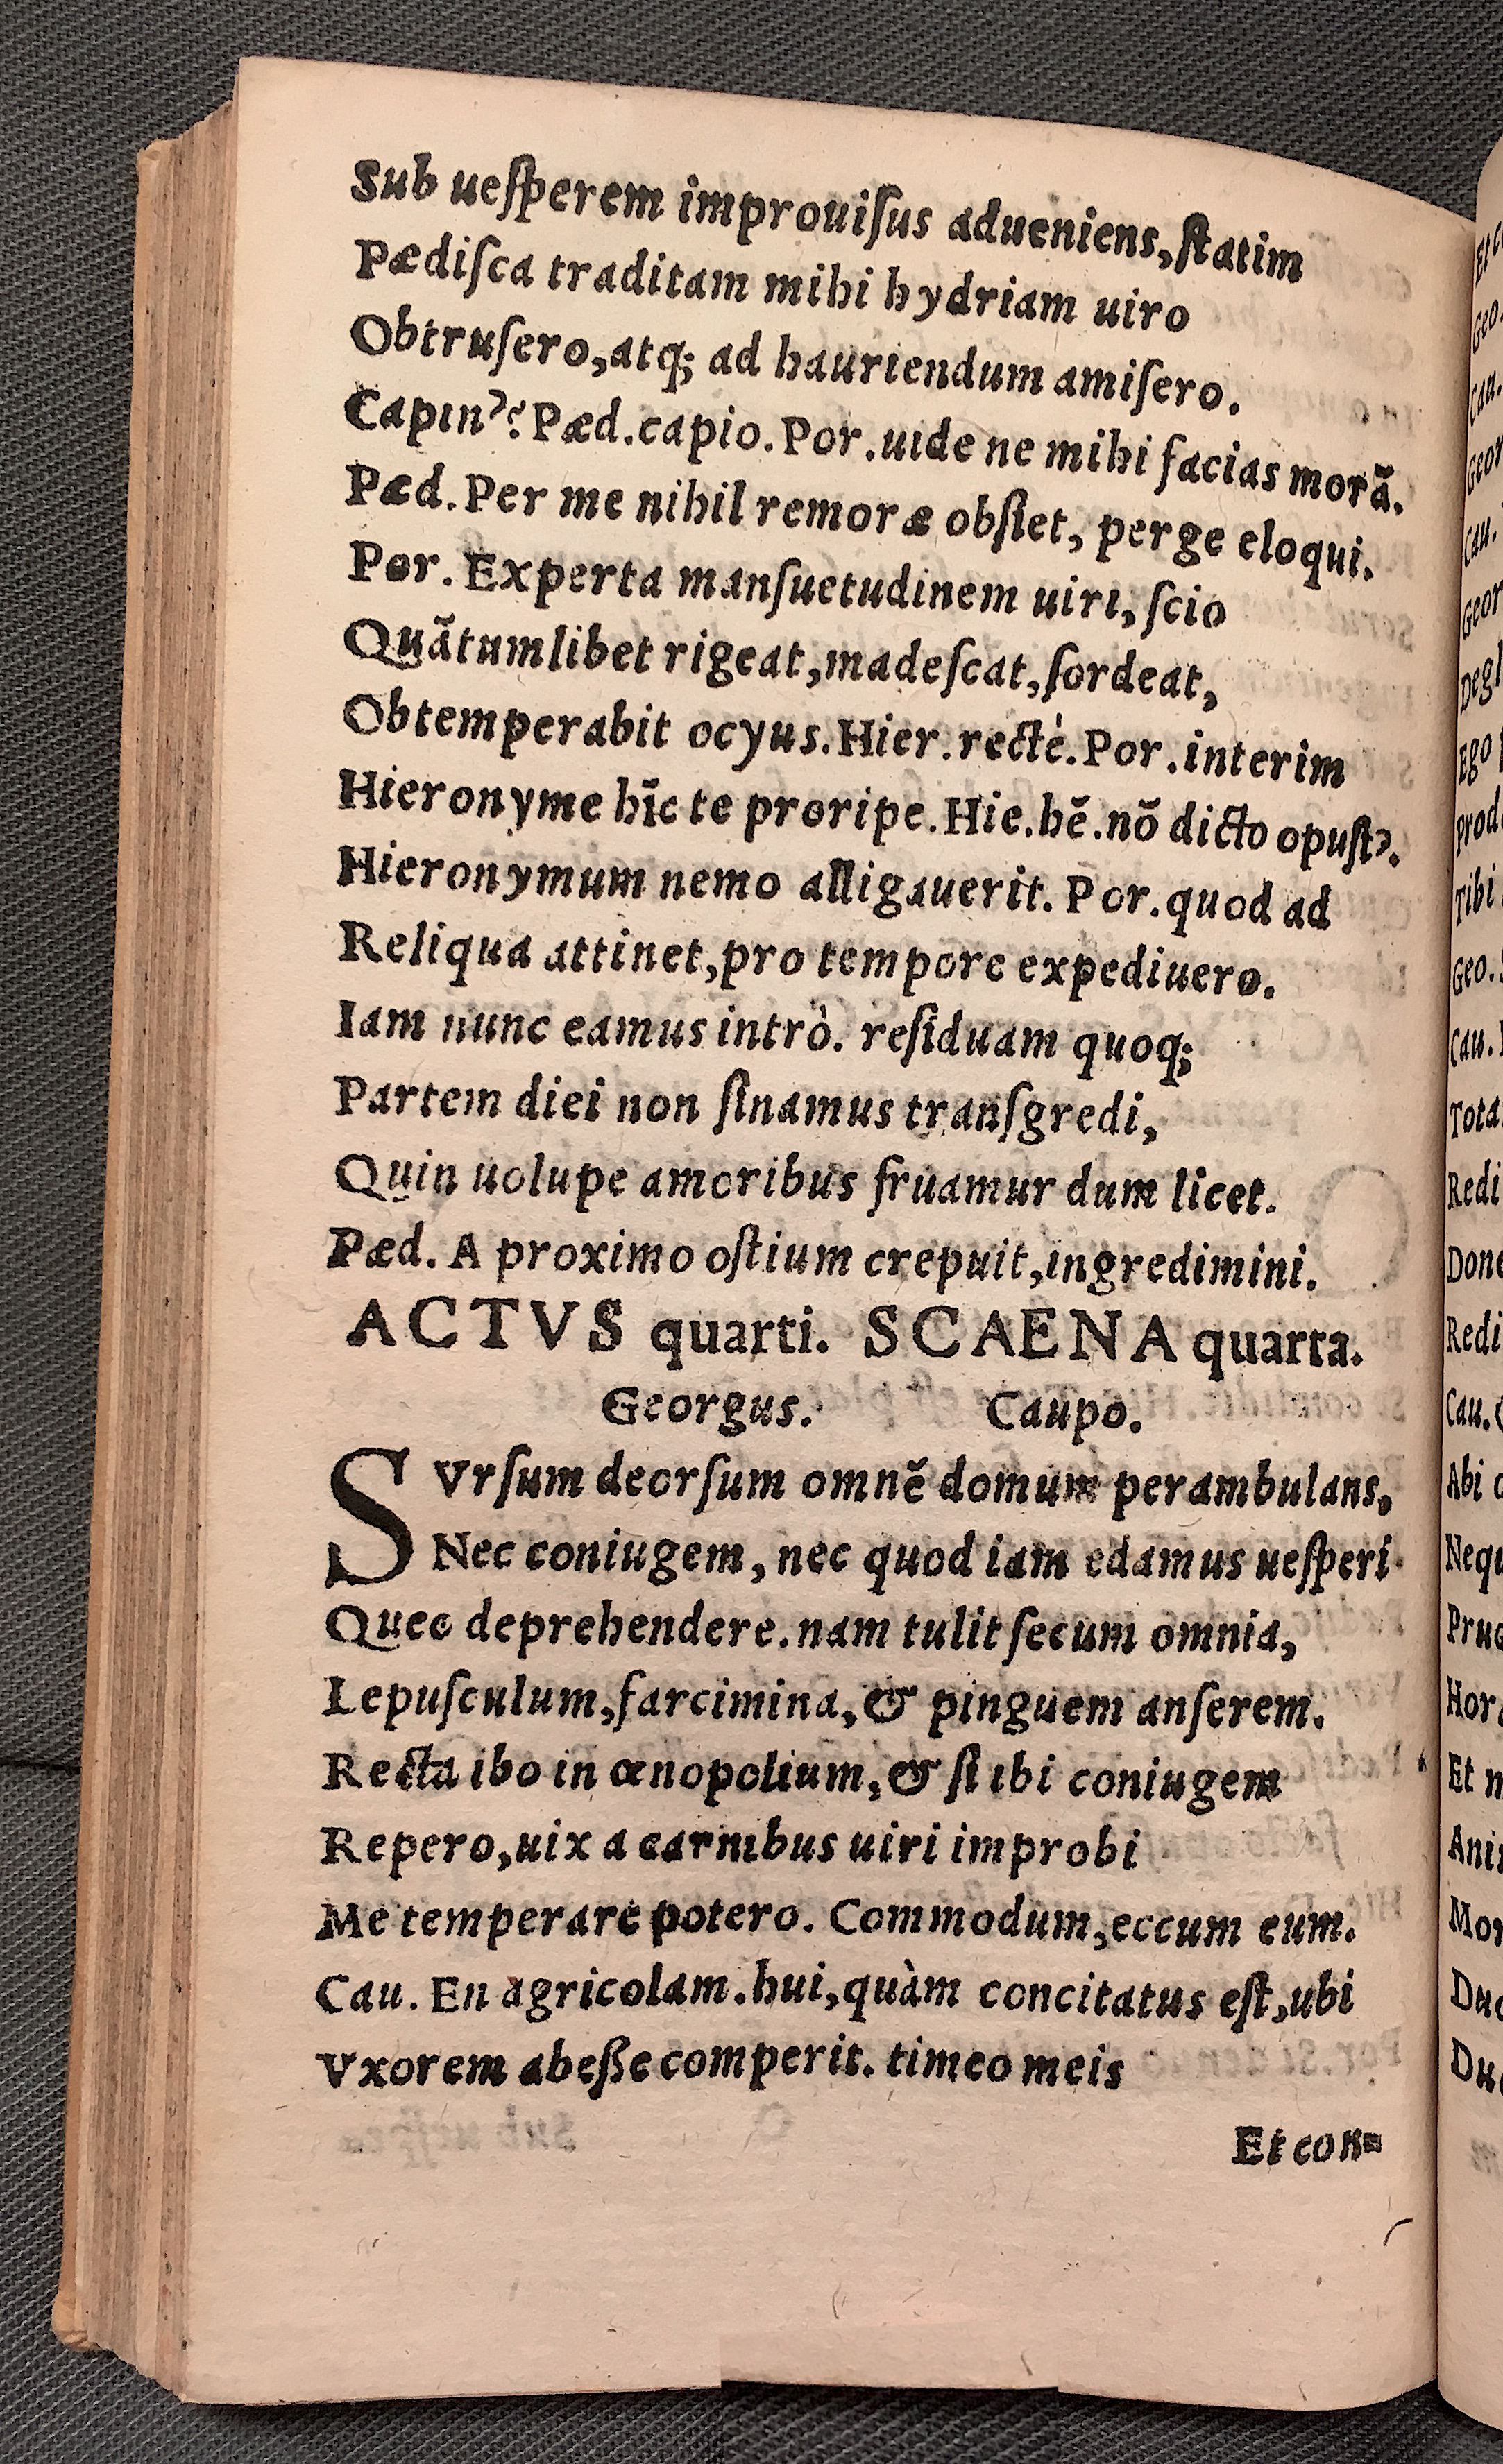 Sub ueſperem improuiſus adueniens, ſtatim
Pædiſca traditam mihi hydriam uiro
Obtruſero, atq; ad hauriendum amiſero.
Capin'? Pæd. capio. Por. uide ne mihi facias morā.
Pæd. Per me nihil remoræ obſiet, perge eloqui.
Por. Experta manſuetudinem uiri, ſcio
Quātumlibet rigeat, madeſcat, ſordeat,
Obtemperabit ocyus. Hier. rectè. Por. interim
Hieronyme hīc te proripe. Hie. hē. nō dicto opuſt'.
Hieronymum nemo alligauerit. Por. quod ad
Reliqua attinet, pro tempore expediuero.
Iam nunc eamus intrò. reſiduam quoq;
Partem diei non ſinamus tranſgredi,
Quin uolupe amoribus fruamur dum licet.
Pæd. A proximo oſtium crepuit, ingredimini.
ACTVS quarti. SCAENA quarta.
Georgus. Caupo.
SVrſum deorſum omnē domum perambulans,
Nec coniugem, nec quod iam edamus ueſperi
Queo deprehendere. nam tulit ſecum omnia,
Lepuſculum, farcimina, & pinguem anſerem.
Recta ibo in œnopolium, & ſi ibi coniugem
Repero, uix a carnibus uiri improbi
Me temperare potero. Commodum, eccum eum.
Cau. En agricolam. hui, quàm concitatus eſt, ubi
Vxorem abeſſe comperit. timeo meis
Et con=
Geo.
Cau.
Geor
Cau.
Geor
Ego
Tibi
Geo.
Cau.
Redi
Redi
Cau.
Abi
Et